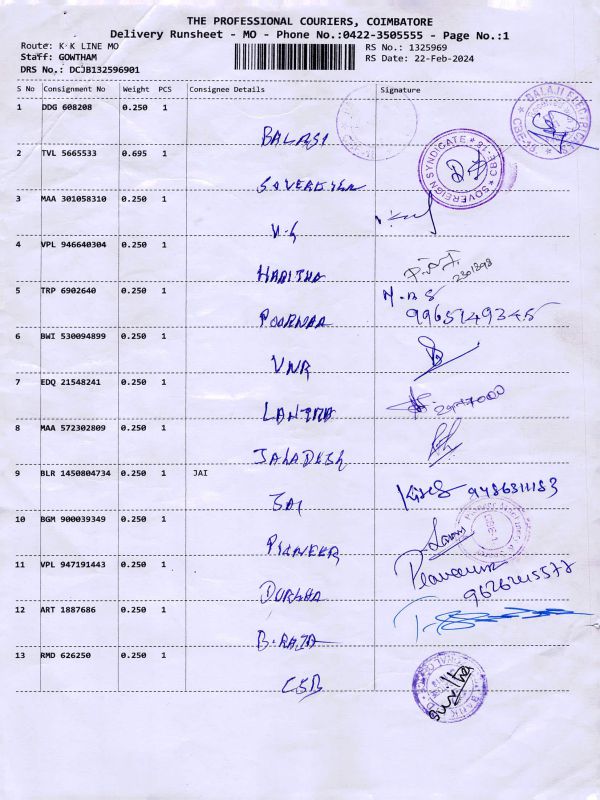 THE PROFESSIONAL COURIERS, COIMBATORE
Delivery Runsheet - MO - Phone No.:0422-3505555 - Page No.:1
Route: K K LINE MO
RS No.: 1325969
Staff: GOWTHAM
RS Date: 22-Feb-2024
DRS No.: DCJB132596901
S No Consignment No Weight PCS Consignee Details Signature
1 DDG 608208 0.250 1
BALAJI
BALAJI ELECT
CBE-15
2 TVL 5665533 0.695 1
SOVEREIGN
SOVEREIGN SYNDICATE * CBE-18 *
3 MAA 301058310 0.250 1
4 VPL 946640304 0.250 1
HARITHA
5 TRP 6902640 0.250 1
POORNAA
9965149345
6 BWI 530094899 0.250 1
VNR
7 EDQ 21548241 0.250 1
8 MAA 572302809 0.250 1
JALADESH
9 BLR 1450804734 0.250 1 JAI
JAI 9486311183
10 BGM 900039349 0.250 1
PIONEER
11 VPL 947191443 0.250 1
DURGHA
12 ART 1887686 0.250 1
B-RAJA
13 RMD 626250 0.250 1
CSB